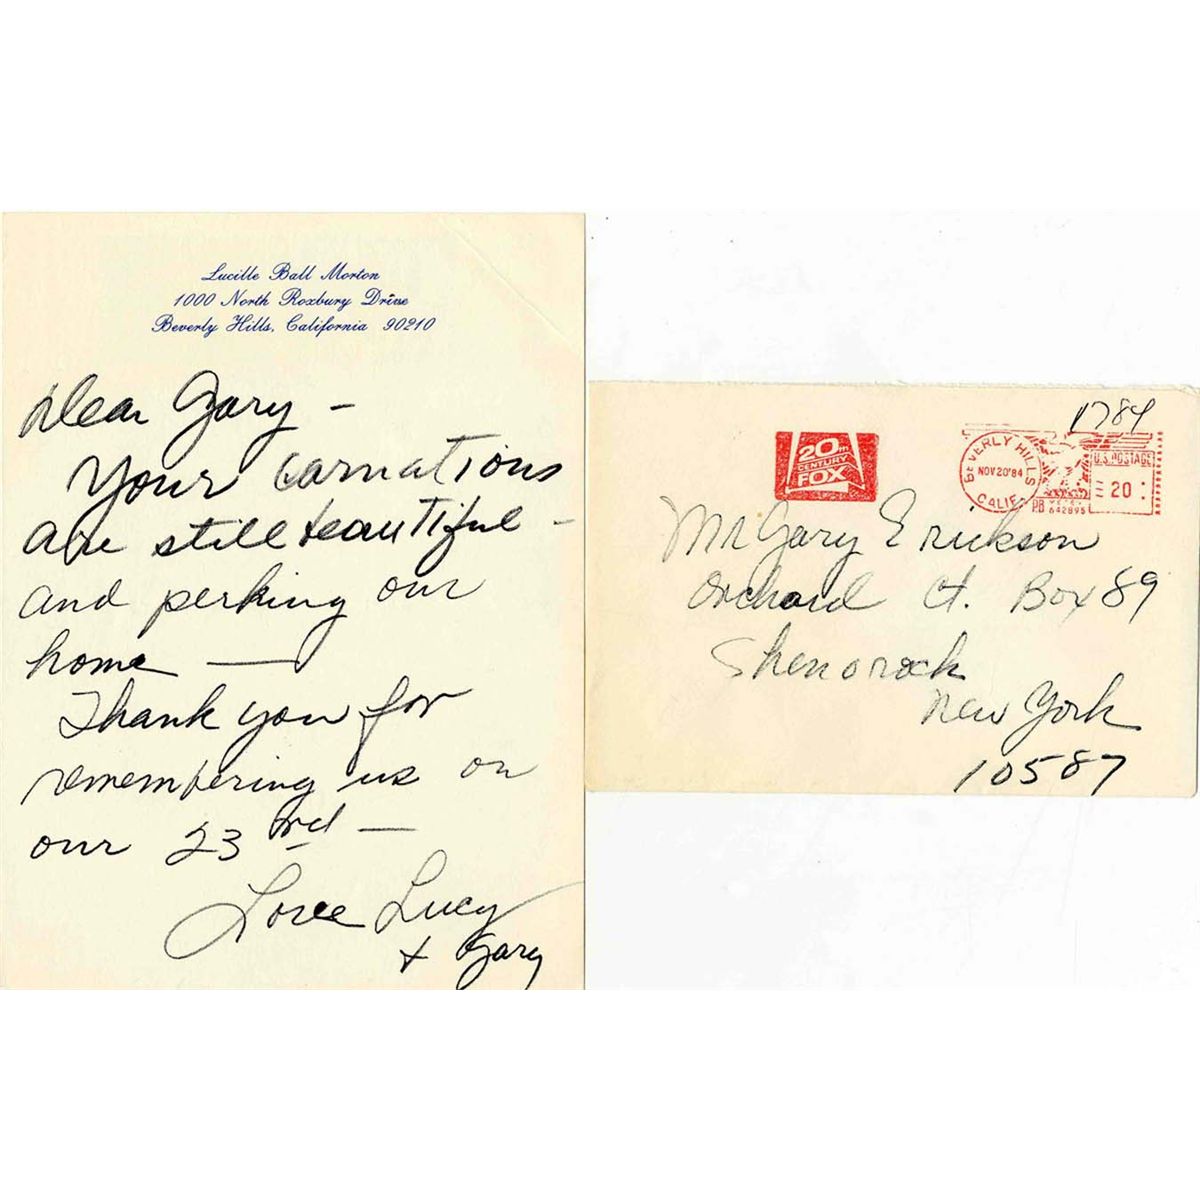 Lucille Ball Morton
1000 North Roxbury Drive
Beverly Hills, California 90210
Dear Gary –
Your carnations
are still beautiful –
and perking our
home —
Thank you for
remembering us on
our 23rd —
Love Lucy
+ Gary
1784
20TH
CENTURY
FOX
BEVERLY HILLS
NOV 20'84
CALIF.
U.S. POSTAGE
20
PB
642895
Mr Gary Erickson
Orchard Ct. Box 89
Shenorock
New York
10587